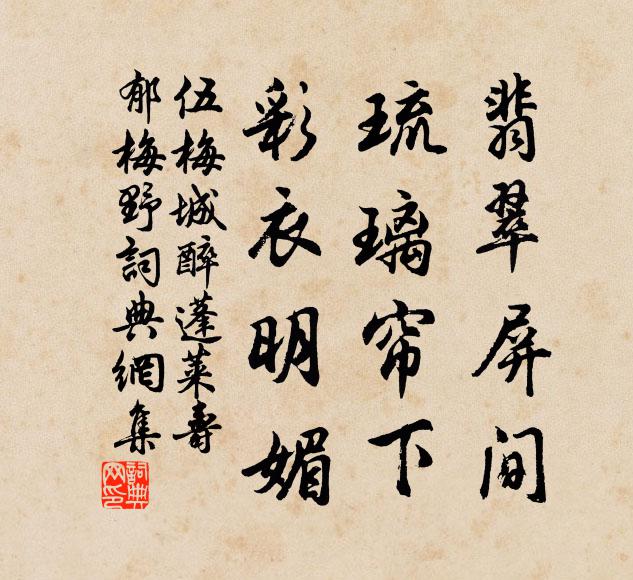 翡翠屏间
琉璃帘下
彩衣明媚
伍梅城醉蓬莱寿
郁梅野詞典網集
詞典網印